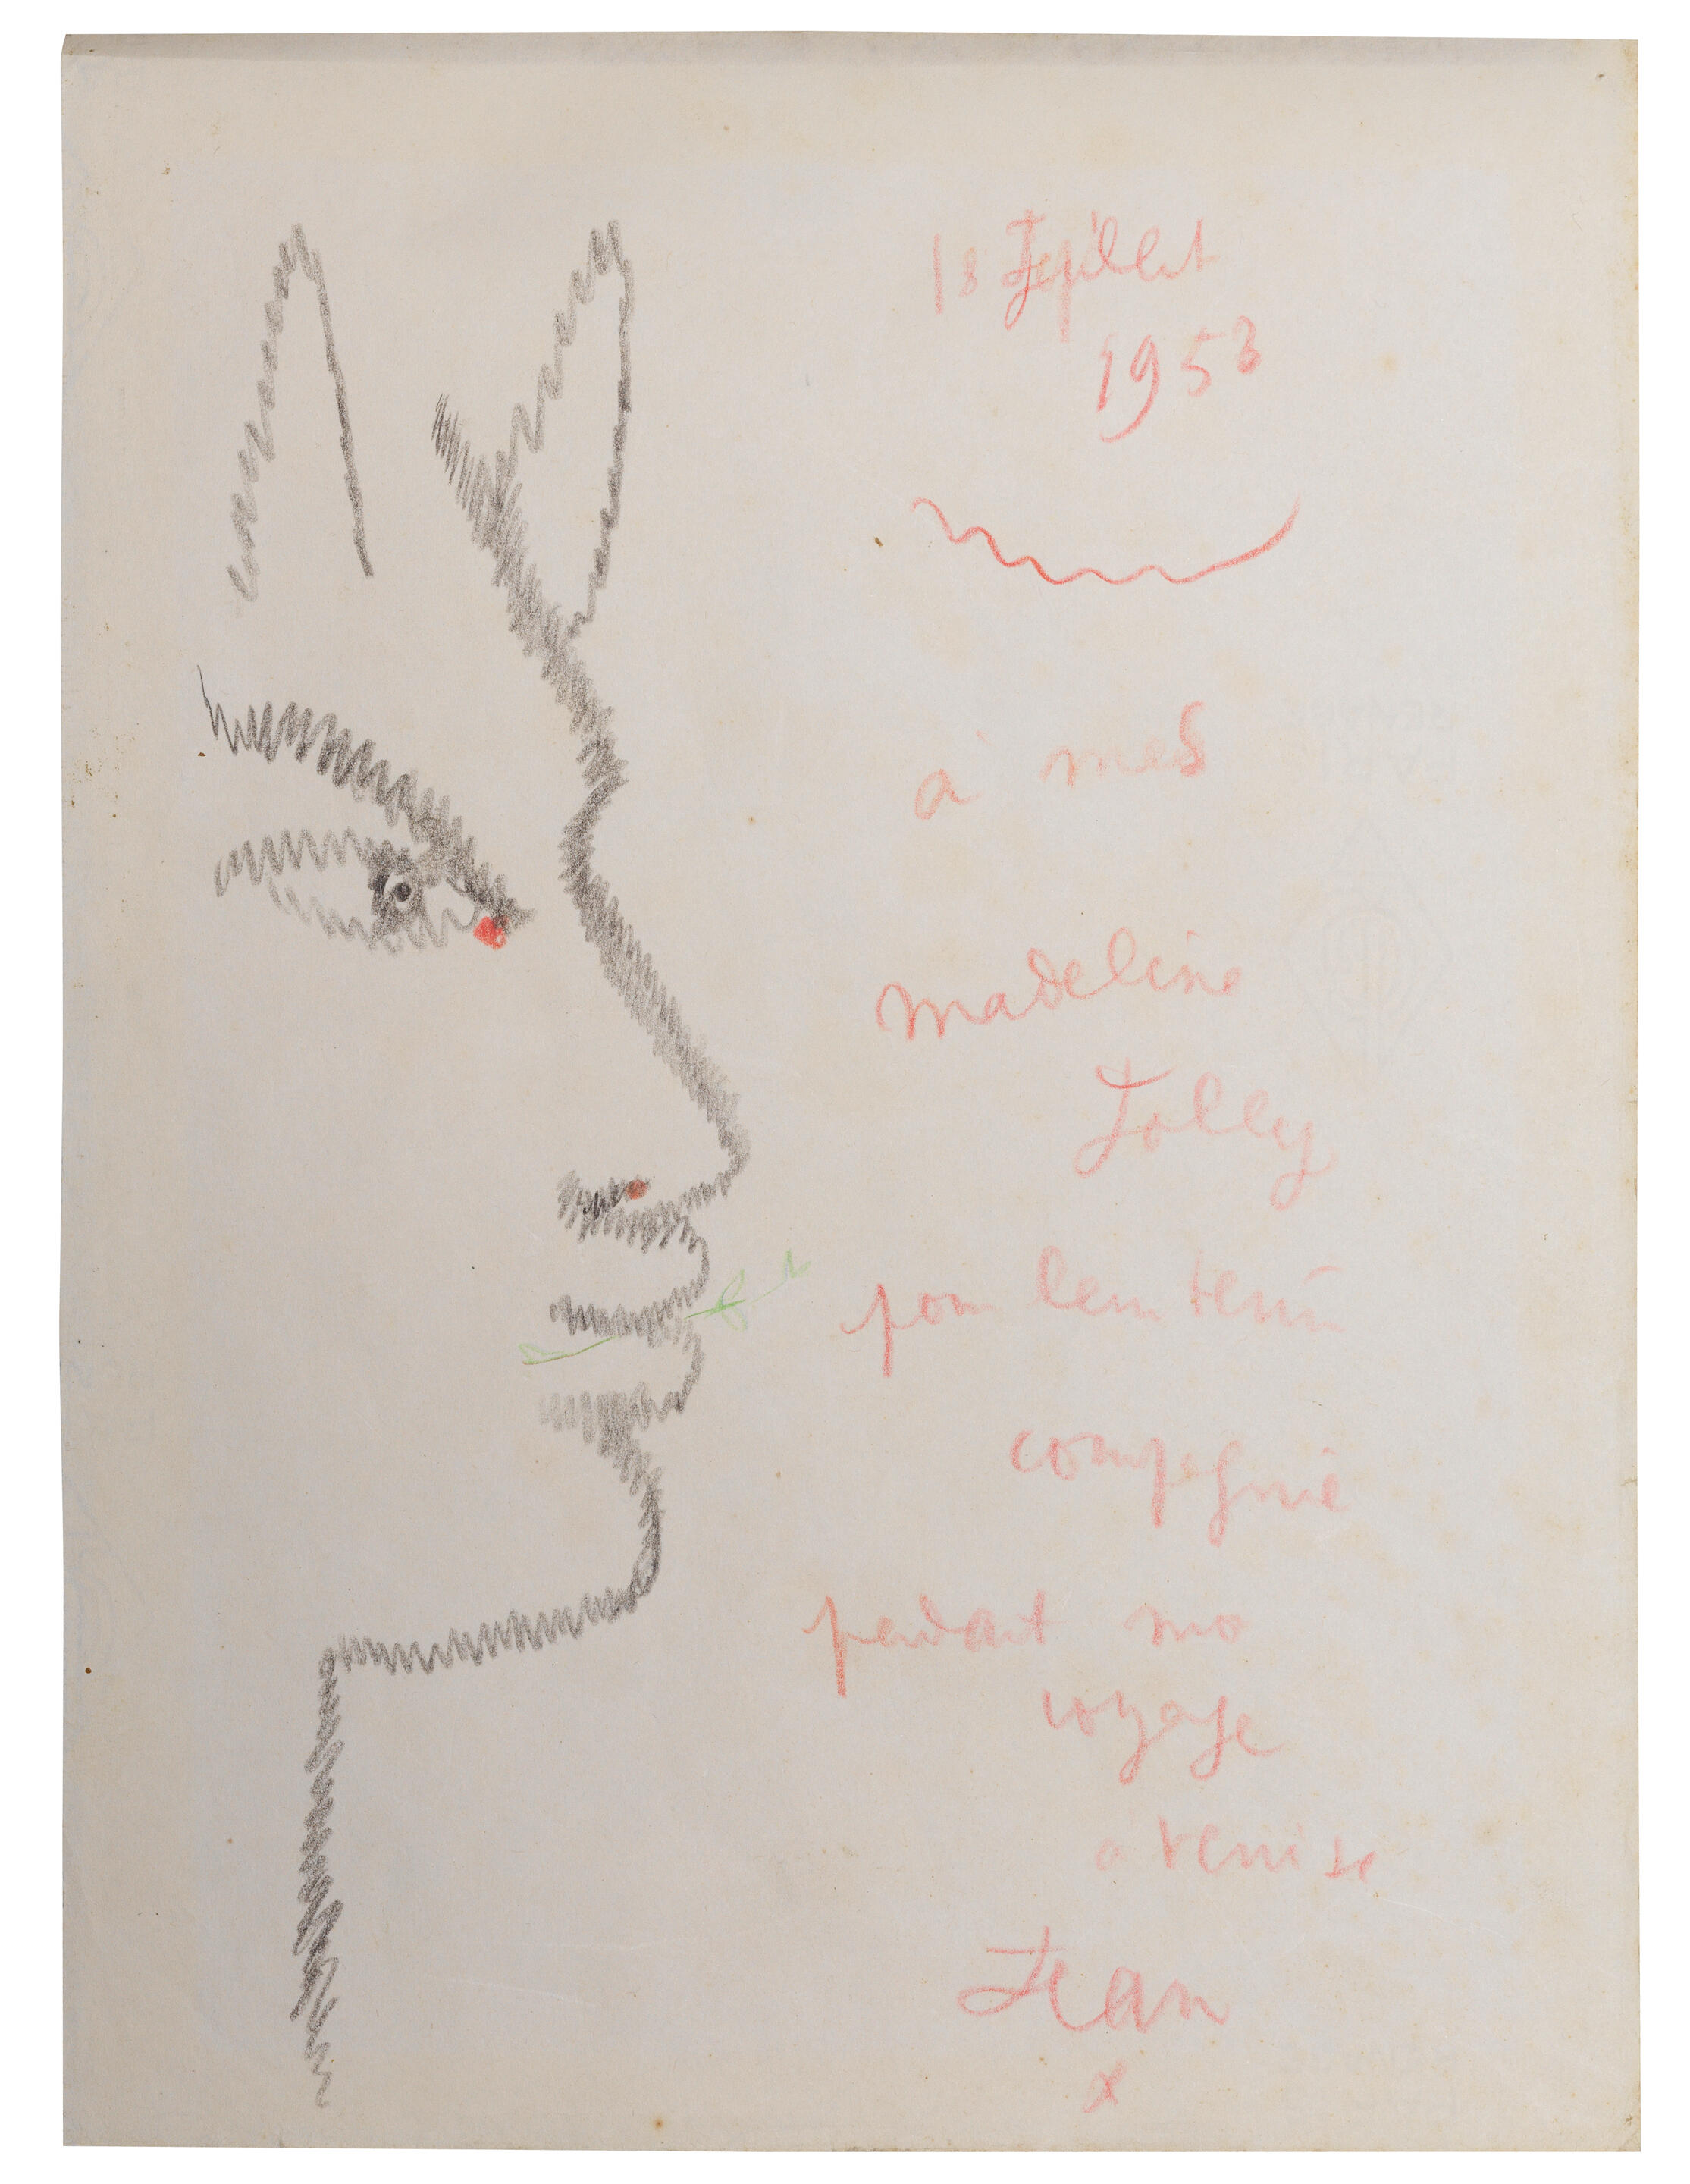 18
1953
à mes
madeline
Jolly
pour leur tenir
compagnie
pendant mo
voyage
a venise
Jean
x